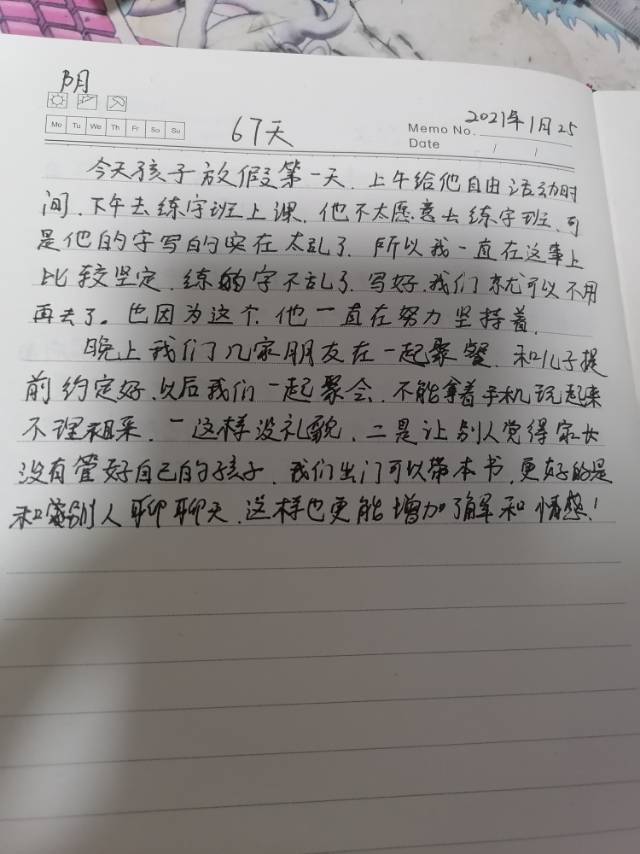 阴
Mo Tu We Th Fr Sa Su
67天
Memo No. 2021年1月25
Date / /
今天孩子放假第一天.上午给他自由活动时
间.下午去练字班上课.他不太愿意去练字班.可
是他的字写的实在太乱了.所以我一直在这事上
比较坚定.练的字不乱了.写好.我们就可以不用
再去了。也因为这个.他一直在努力坚持着.
晚上我们几家朋友在一起聚餐.和儿子提
前约定好.以后我们一起聚会.不能拿着手机玩起来
不理祖采.一这样没礼貌.二是让别人觉得家长
没有管好自己的孩子.我们出门可以带本书.更好的是
和别人聊聊天.这样也更能增加了解和情感!